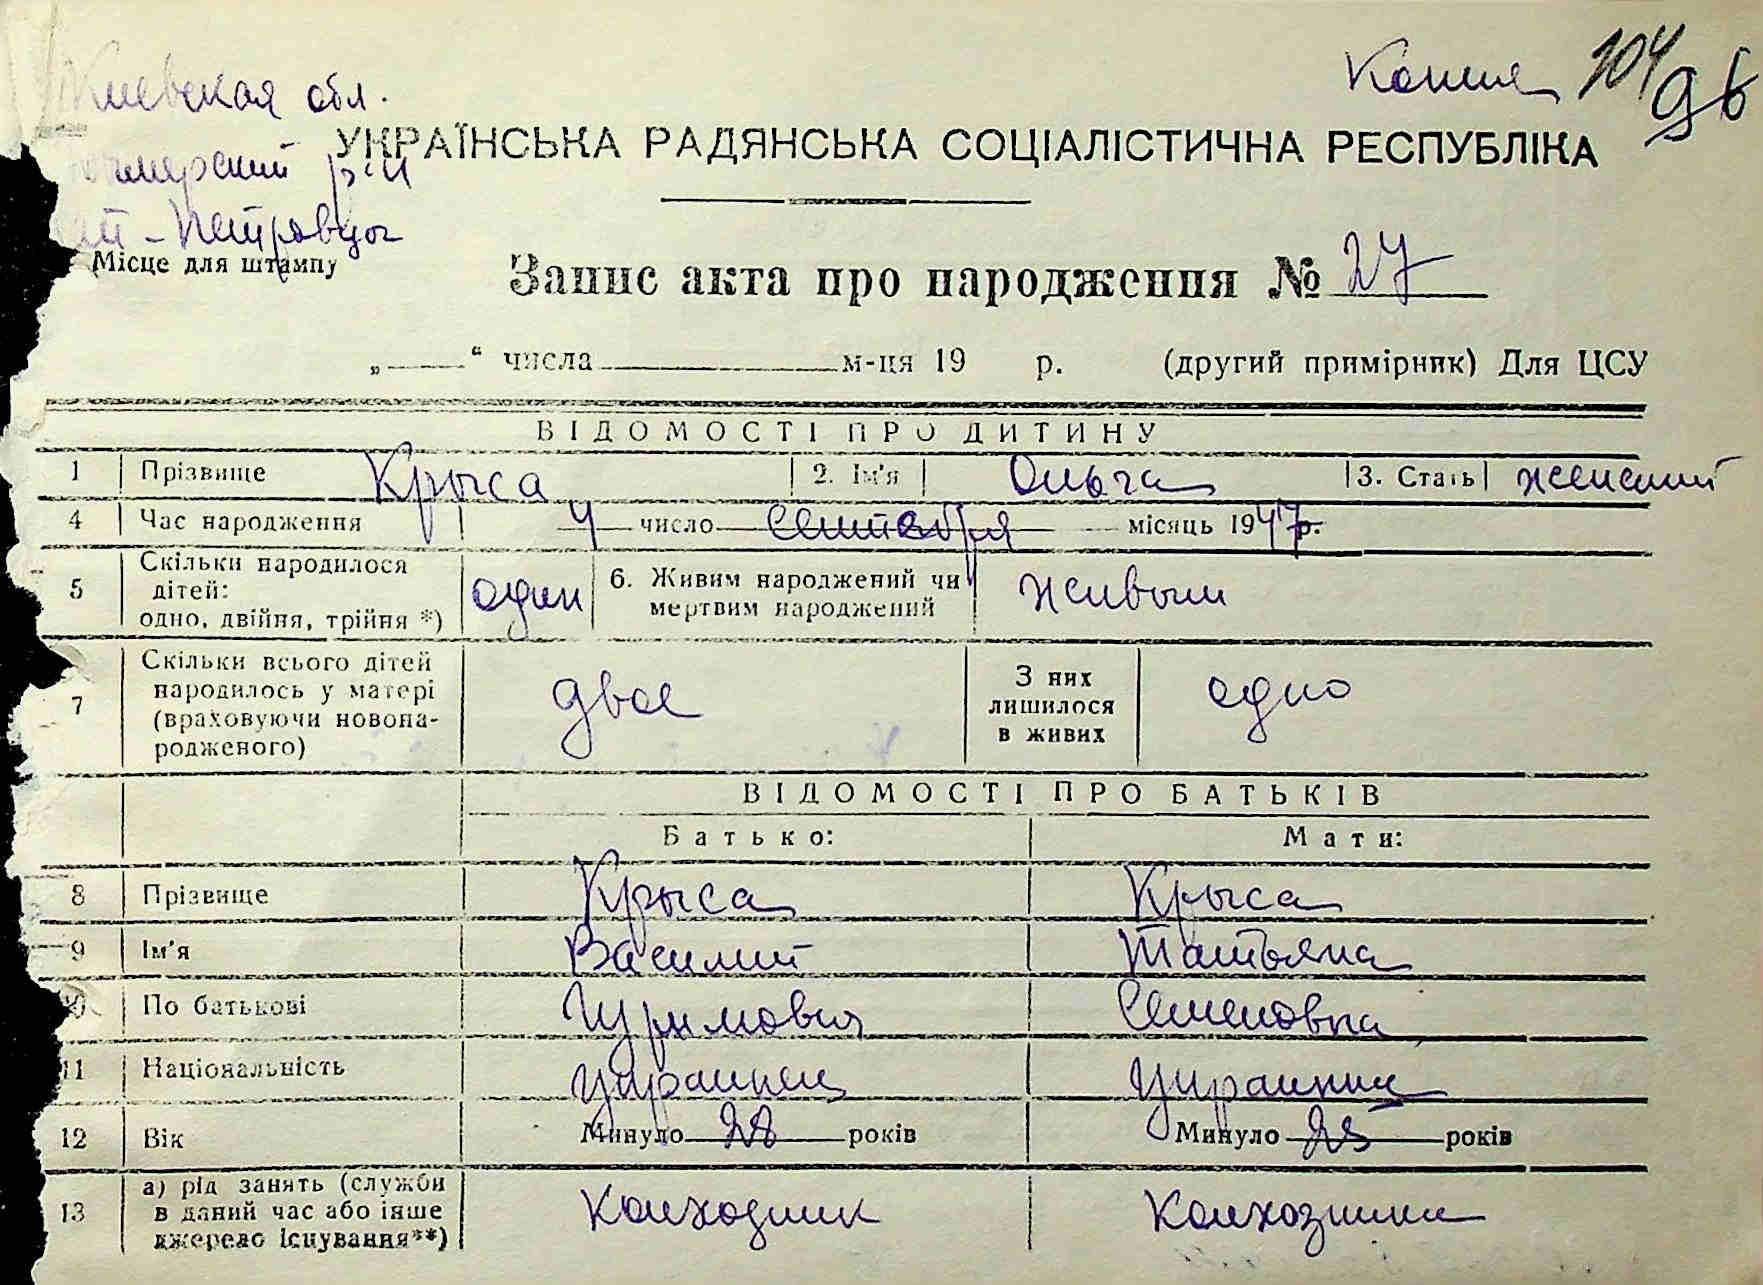 Киевская обл.
Копия 104 96
УКРАЇНСЬКА РАДЯНСЬКА СОЦІАЛІСТИЧНА РЕСПУБЛІКА
р-н
Петровцы
Місце для штампу
Запис акта про народження № 27
„ “ числа м-ця 19 р. (другий примірник) Для ЦСУ
ВІДОМОСТІ ПРО ДИТИНУ
1 Прізвище Крыса 2. Ім'я Ольга 3. Стать женский
4 Час народження 4 число Сентября місяць 1947р.
5 Скільки народилося дітей: одно, двійня, трійня *) один 6. Живим народжений чи мертвим народжений живым
7 Скільки всього дітей народилось у матері (враховуючи новона-родженого) двое З них лишилося в живих одно
ВІДОМОСТІ ПРО БАТЬКІВ
Батько: Мати:
8 Прізвище Крыса Крыса
9 Ім'я Василий Татьяна
10 По батькові Семеновна
11 Національність украинец украинка
12 Вік Минуло 28 років Минуло 25 років
13 а) рід занять (служби в даний час або інше джерело існування**) колхозник колхозница